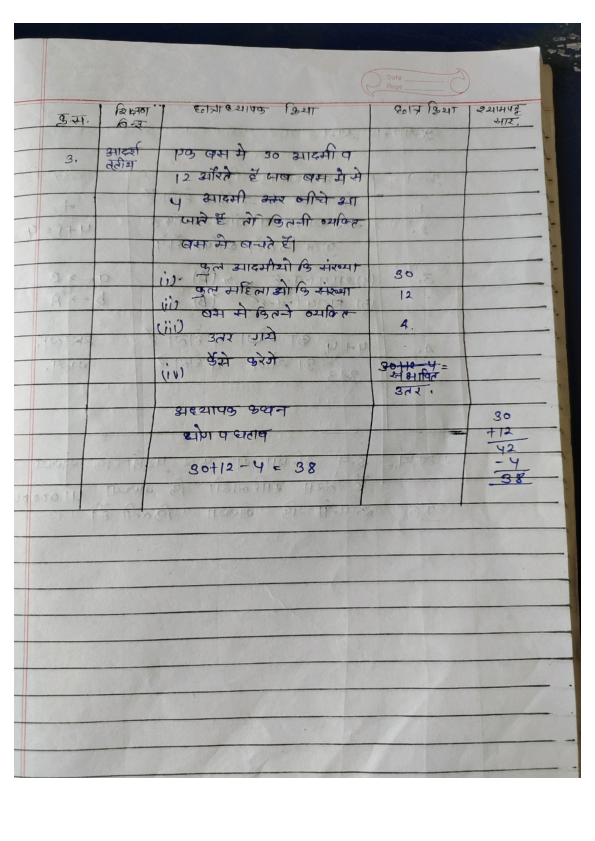 Date
Page
क्र.स. शिक्षण बिन्दु छात्राध्यापक क्रिया छात्र क्रिया श्यामपट्ट सार.
3. आदर्श एक बस मे 30 आदमी व
12 औरते हैं जब बस मे से
4 आदमी नीचे आ
जाते हैं तो कितनी व्यक्ति
बस मे बचते हैं।
(i)- कुल आदमीयो कि संख्या 30
(ii) कुल महिलाओ कि संख्या 12
(iii) बस मे कितने व्यक्ति 4.
उतर गये
(iv) कैसे करेगे 30+12-4=
उतर.
अध्यापक कथन 30
योग व घटाव = +12
42
30+12-4 = 38 -4
38